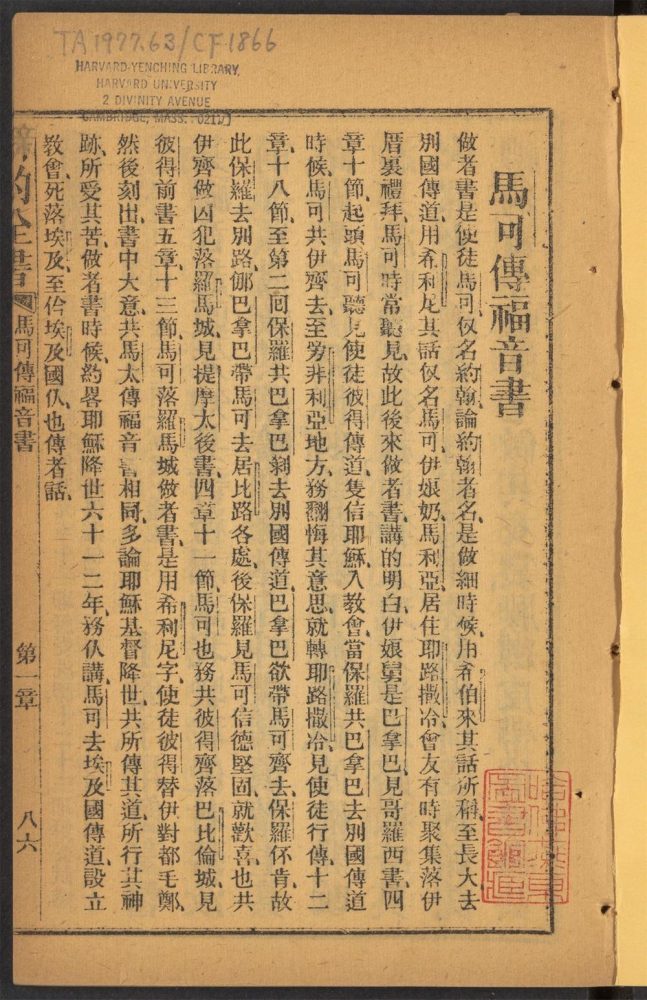 TA 1977.63/CF1866
HARVARD-YENCHING LIBRARY
HARVARD UNIVERSITY
2 DIVINITY AVENUE
CAMBRIDGE, MASS. 02138
馬可傳福音書
做者書是使徒馬可仅名約翰論約翰者名是做細時候用希伯來其話所稱至長大去
別國傳道用希利尼其話仅名馬可伊娘奶馬利亞居住耶路撒冷會友有時聚集落伊
厝裏禮拜馬可時常聽見故此後來做者書講的明白伊娘舅是巴拿巴見哥羅西書四
章十節起頭馬可聽見使徒彼得傳道隻信耶穌入教會當保羅共巴拿巴去別國傳道
時候馬可共伊齊去至旁非利亞地方務翻悔其意思就轉耶路撒冷見使徒行傳十二
章十八節至第二回保羅共巴拿巴剩去別國傳道巴拿巴欲帶馬可齊去保羅伓肯故
此保羅去別路㑚巴拿巴帶馬可去居比路各處後保羅見馬可信德堅固就歡喜也共
伊齊做囚犯落羅馬城見提摩太後書四章十一節馬可也務共彼得齊落巴比倫城見
彼得前書五章十三節馬可落羅馬城做者書是用希利尼字使徒彼得替伊對都毛鄭
然後刻出書中大意共馬太傳福音書相同多論耶穌基督降世共所傳其道所行其神
跡所受其苦做者書時候約畧耶穌降世六十一二年務仈講馬可去埃及國傳道設立
教會死落埃及至佮埃及國仈也傳者話
新約全書 馬可傳福音書 第一章 八六